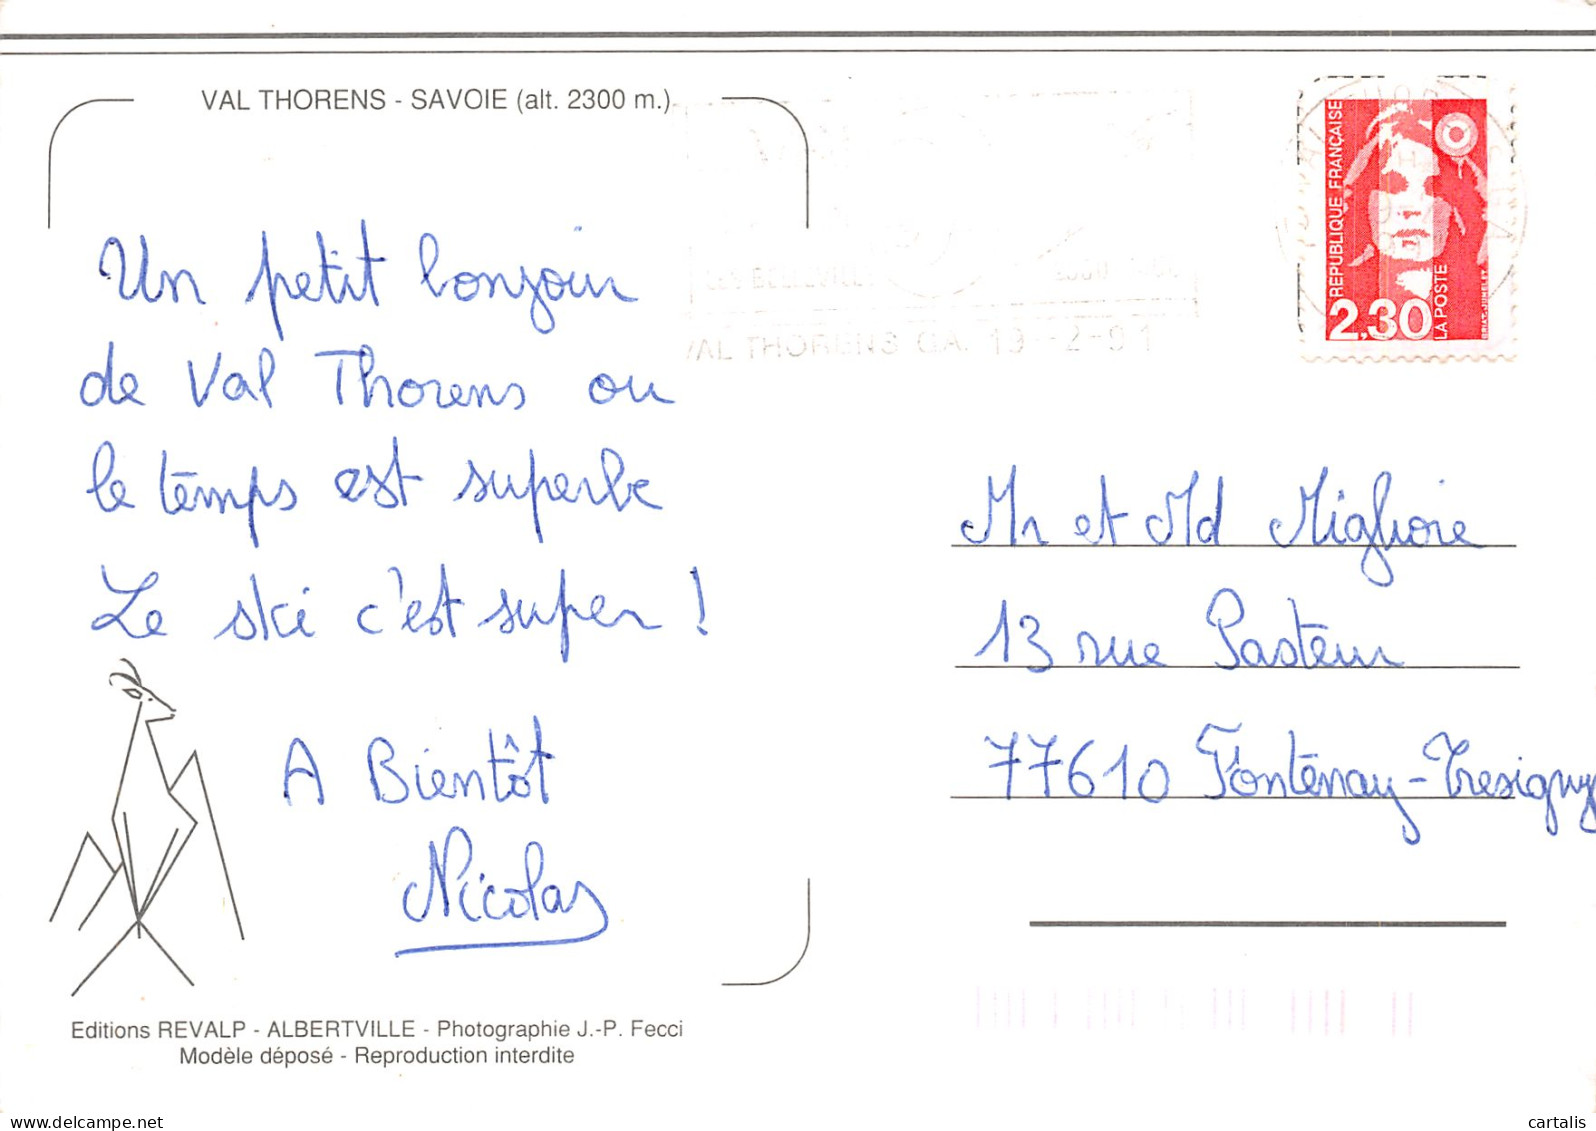 VAL THORENS - SAVOIE (alt. 2300 m.)
Un petit bonjour
de Val Thorens ou
le temps est superbe
Le ski c'est super !
A Bientôt
Nicolas
Editions REVALP - ALBERTVILLE - Photographie J.-P. Fecci
Modèle déposé - Reproduction interdite
LES BELLEVILLE
VAL THORENS GA. 19-2-91
REPUBLIQUE FRANÇAISE
2,30
LA POSTE
Mr et Md
13 rue Pasteur
77610 Fontenay-Tresigny
delcampe.net
cartalis